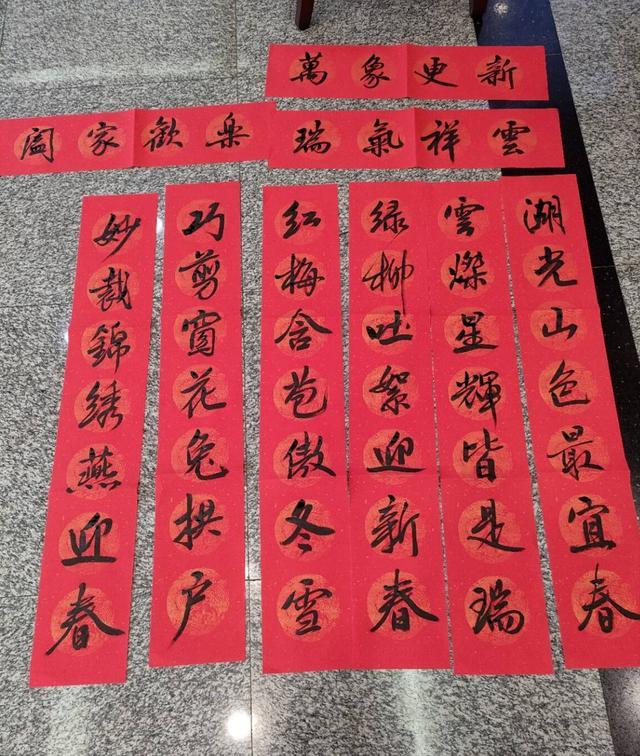 萬象更新
阖家歡樂
瑞氣祥雲
妙裁錦绣燕迎春
巧剪窗花兔拱户
红梅含苞傲冬雪
绿柳吐絮迎新春
雲燦星輝皆是瑞
湖光山色最宜春